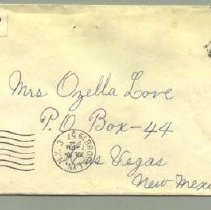 Mrs Ozella Love
P.O. Box-44
Las Vegas
New Mexi